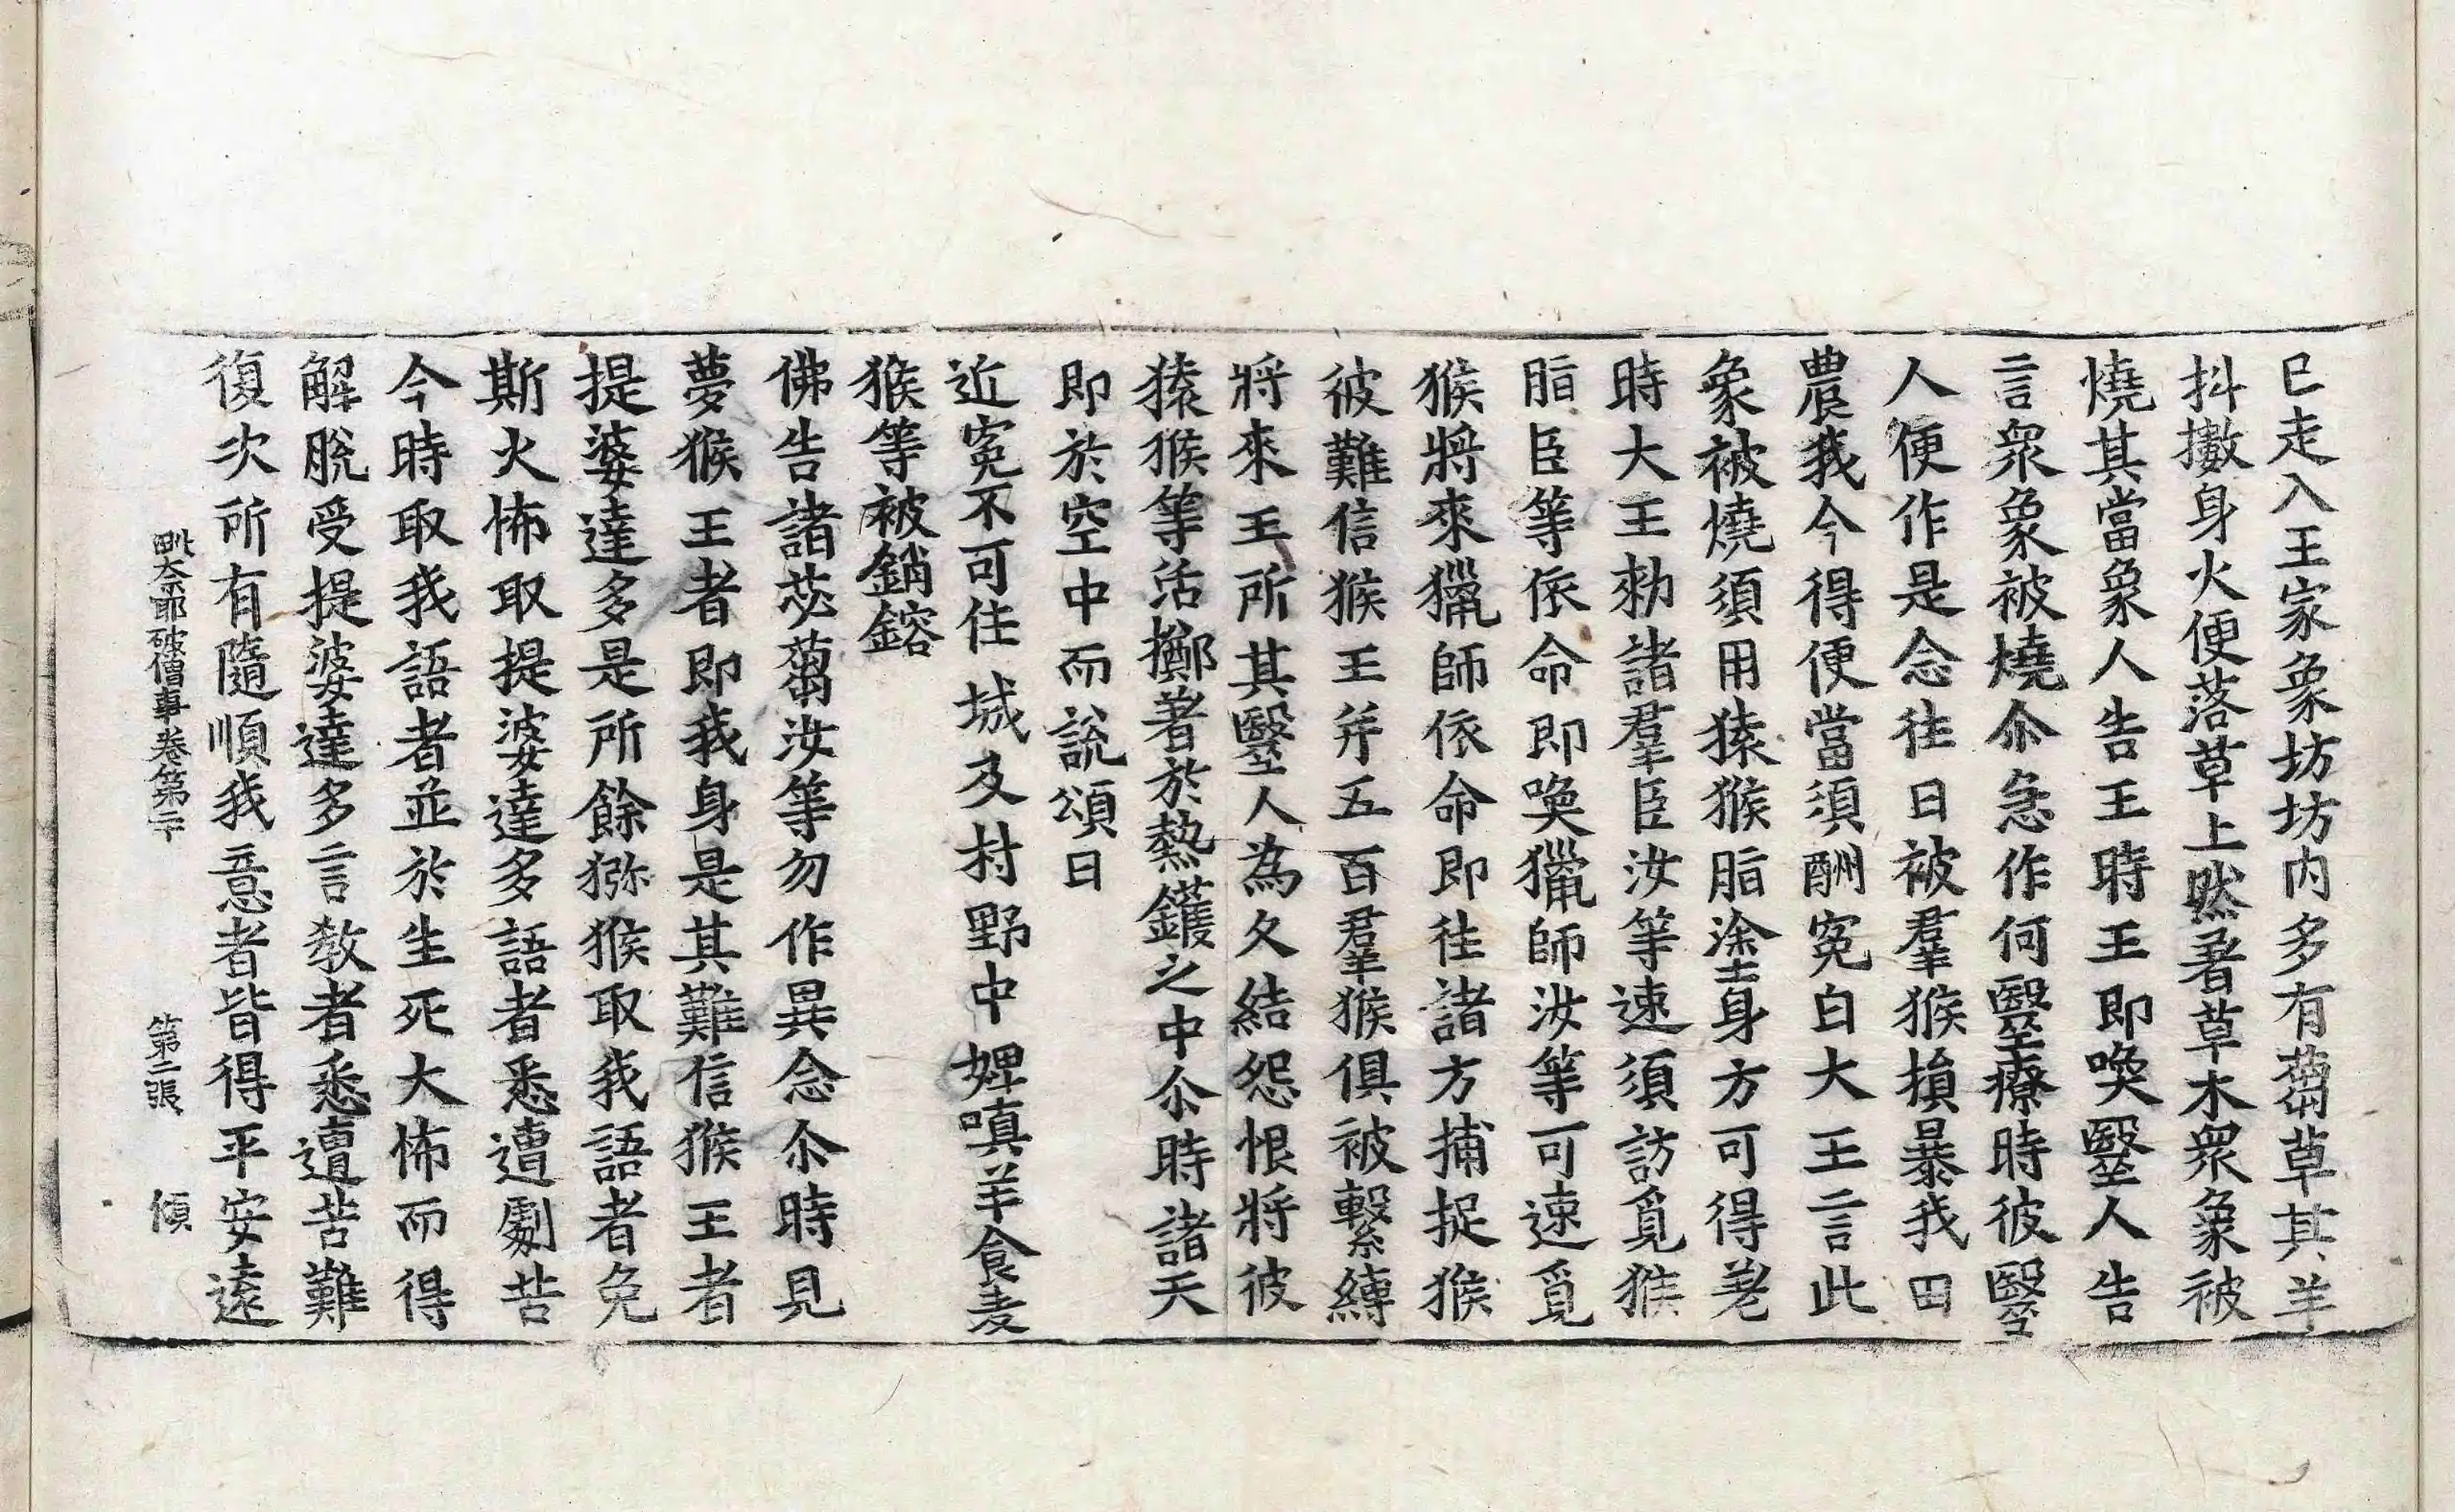 已走入王家象坊坊内多有蒭草其羊
抖擻身火便落草上燃著草木衆象被
燒其當象人告王時王即喚醫人告
言衆象被燒尒急作何醫療時彼醫
人便作是念往日被羣猴損暴我田
農我今得便當須酬寃白大王言此
象被燒須用猿猴脂塗身方可得差
時大王勑諸羣臣汝等速須訪覓猴
脂臣等依命即喚獵師汝等可速覓
猴將來獵師依命即往諸方捕捉猴
彼難信猴王并五百羣猴俱被繫縛
將來王所其醫人為久結怨恨將彼
猿猴等活擲著於熱鑊之中尒時諸天
即於空中而說頌曰
近寃不可住 城及村野中 婢嗔羊食麦
猴等被銷鎔
佛告諸苾蒭汝等勿作異念尒時見
夢猴王者即我身是其難信猴王者
提婆達多是所餘獼猴取我語者免
斯火怖取提婆達多語者悉遭劇苦
今時取我語者並於生死大怖而得
解脫受提婆達多言教者悉遭苦難
復次所有隨順我意者皆得平安遠
毗奈耶破僧事卷第二十 第二張 傾